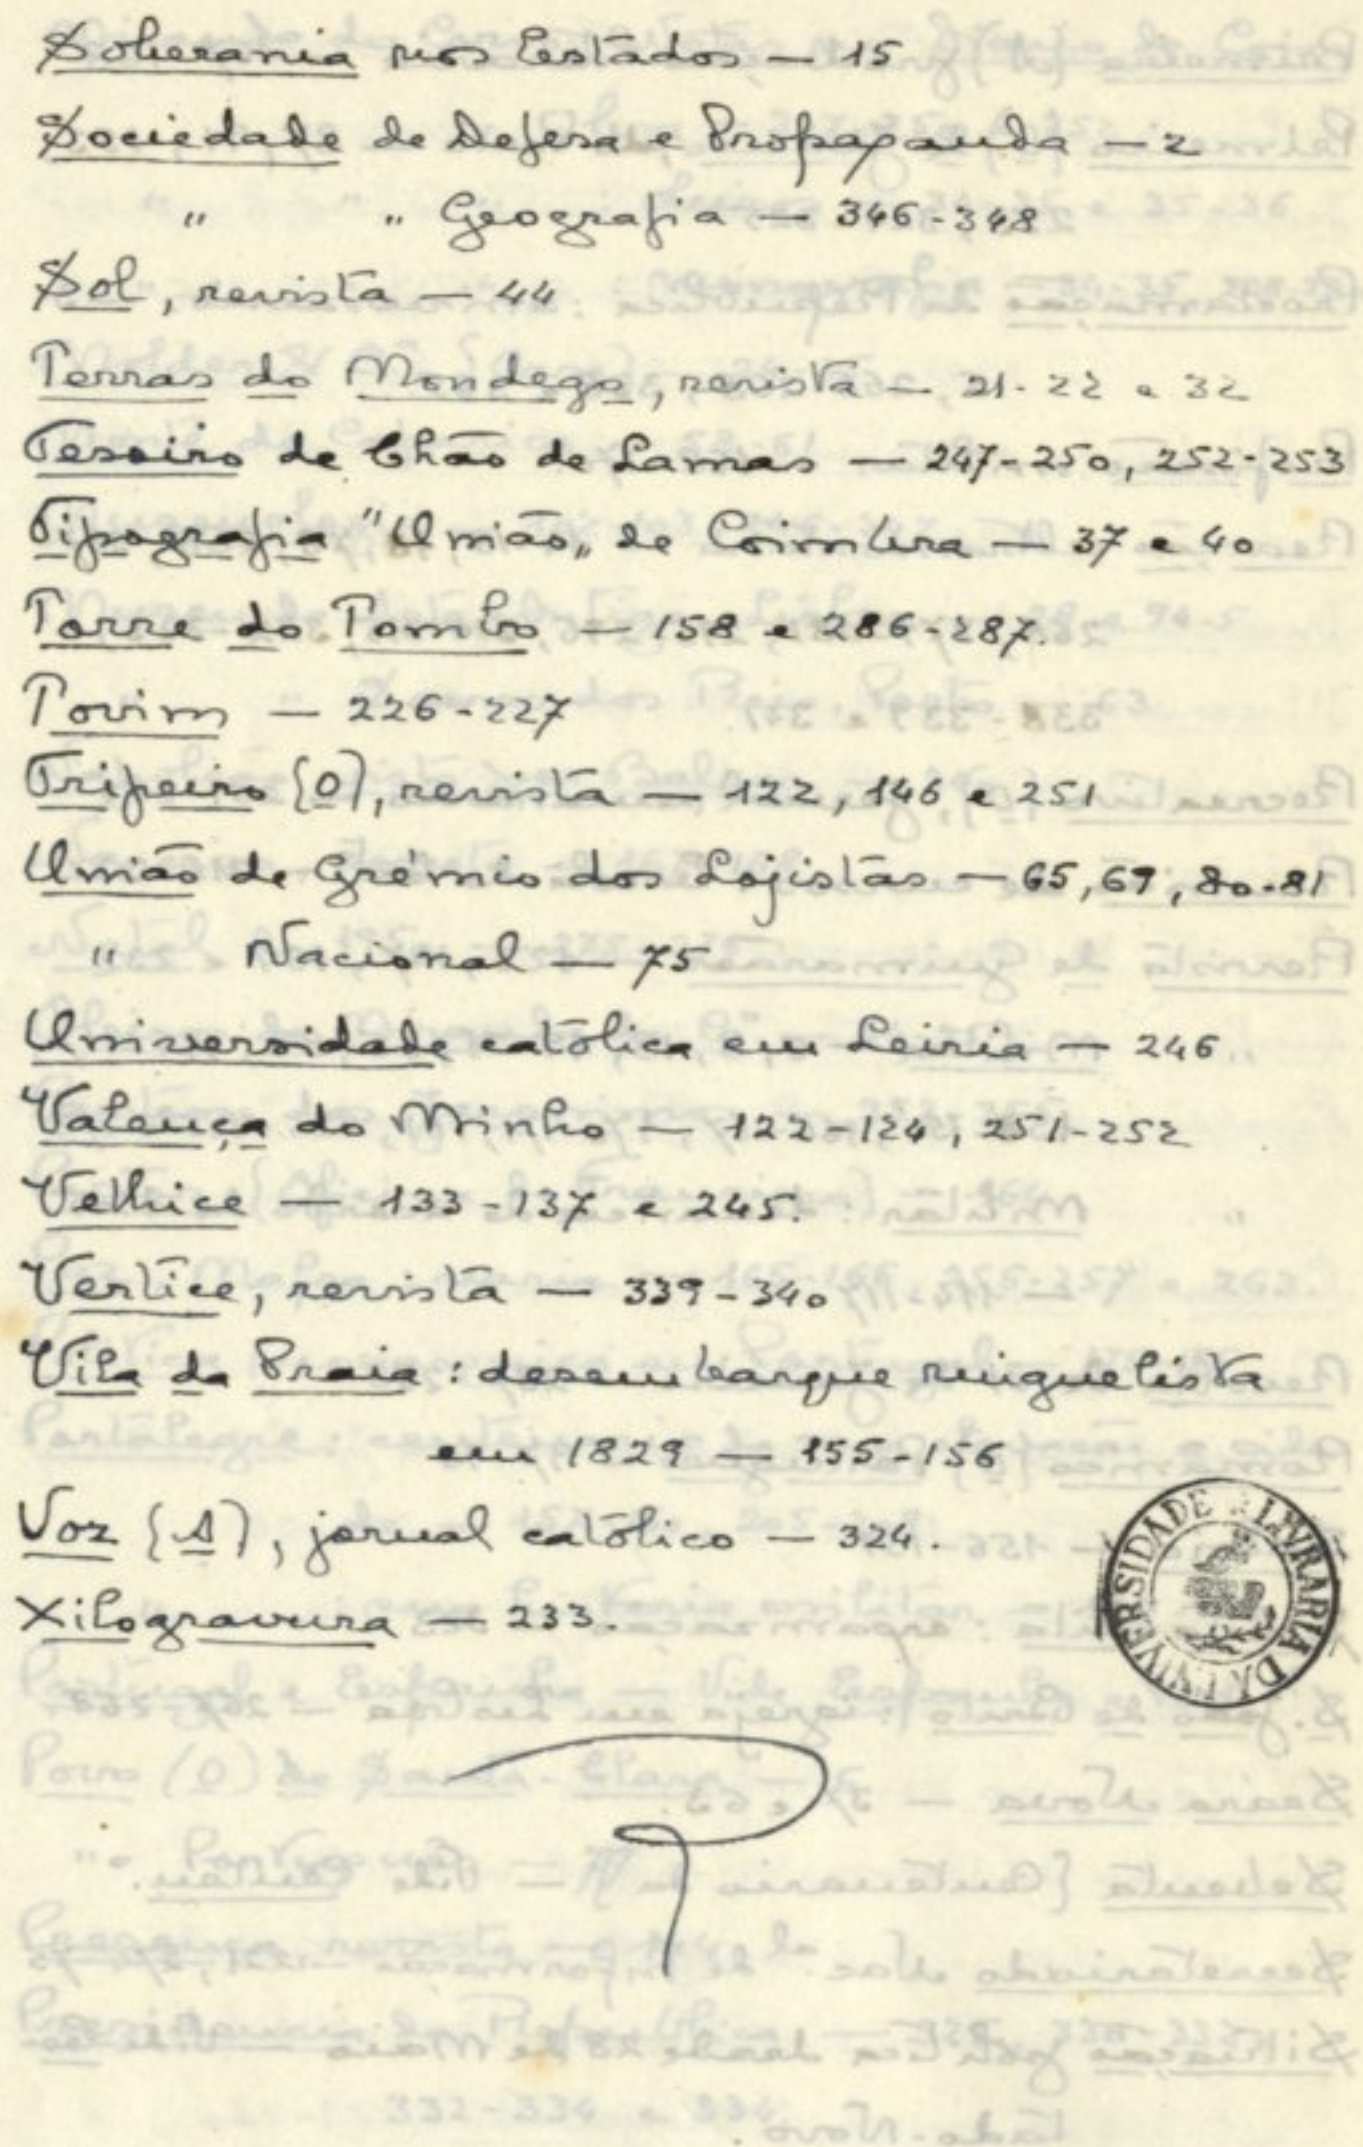 Soberania nos Estados — 15
Sociedade de Defesa e Propaganda — 2
" " Geografia — 346-348
Sol, revista — 44
Terras do Mondego, revista — 21-22 e 32
Tesoiro de Chão de Lamas — 247-250, 252-253
Tipografia "União„ de Coimbra — 37 e 40
Torre do Tombo — 158 e 286-287.
Tovim — 226-227
Tripeiro (O), revista — 122, 146 e 251
União de Grémio dos Lojistas — 65, 69, 80-81
" Nacional — 75
Universidade católica em Leiria — 246
Valença do Minho — 122-124, 251-252
Velhice — 133-137 e 245.
Vertice, revista — 339-340
Vila da Praia: desembarque miguelista
em 1829 — 155-156
Voz (A), jornal católico — 324.
Xilogravura — 233.
LIVRARIA DA UNIVERSIDADE